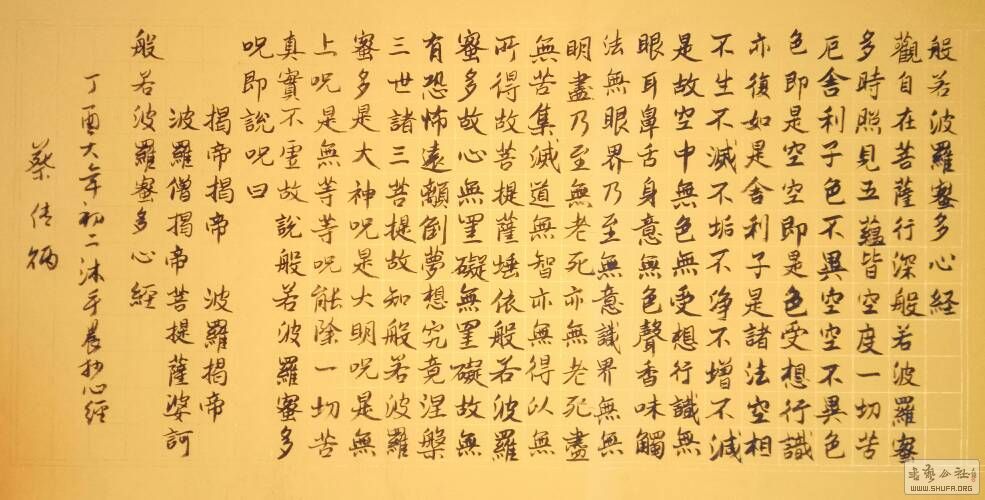 般若波羅蜜多心経
觀自在菩薩行深般若波羅蜜
多時照見五蘊皆空度一切苦
厄舍利子色不異空空不異色
色即是空空即是色受想行識
亦復如是舍利子是諸法空相
不生不滅不垢不淨不增不減
是故空中無色無受想行識無
眼耳鼻舌身意無色聲香味觸
法無眼界乃至無意識界無無
明盡乃至無老死亦無老死盡
無苦集滅道無智亦無得以無
所得故菩提薩埵依般若波羅
蜜多故心無罣礙無罣礙故無
有恐怖遠顛倒夢想究竟涅槃
三世諸三菩提故知般若波羅
蜜多是大神呪是大明呪是無
上呪是無等等呪能除一切苦
真實不虛故說般若波羅蜜多
呪即說呪曰
揭帝揭帝 波羅揭帝
波羅僧揭帝 菩提薩婆訶
般若波羅蜜多心経
丁酉大年初二沐手晨抄心經
蔡
WWW.SHUFA.ORG